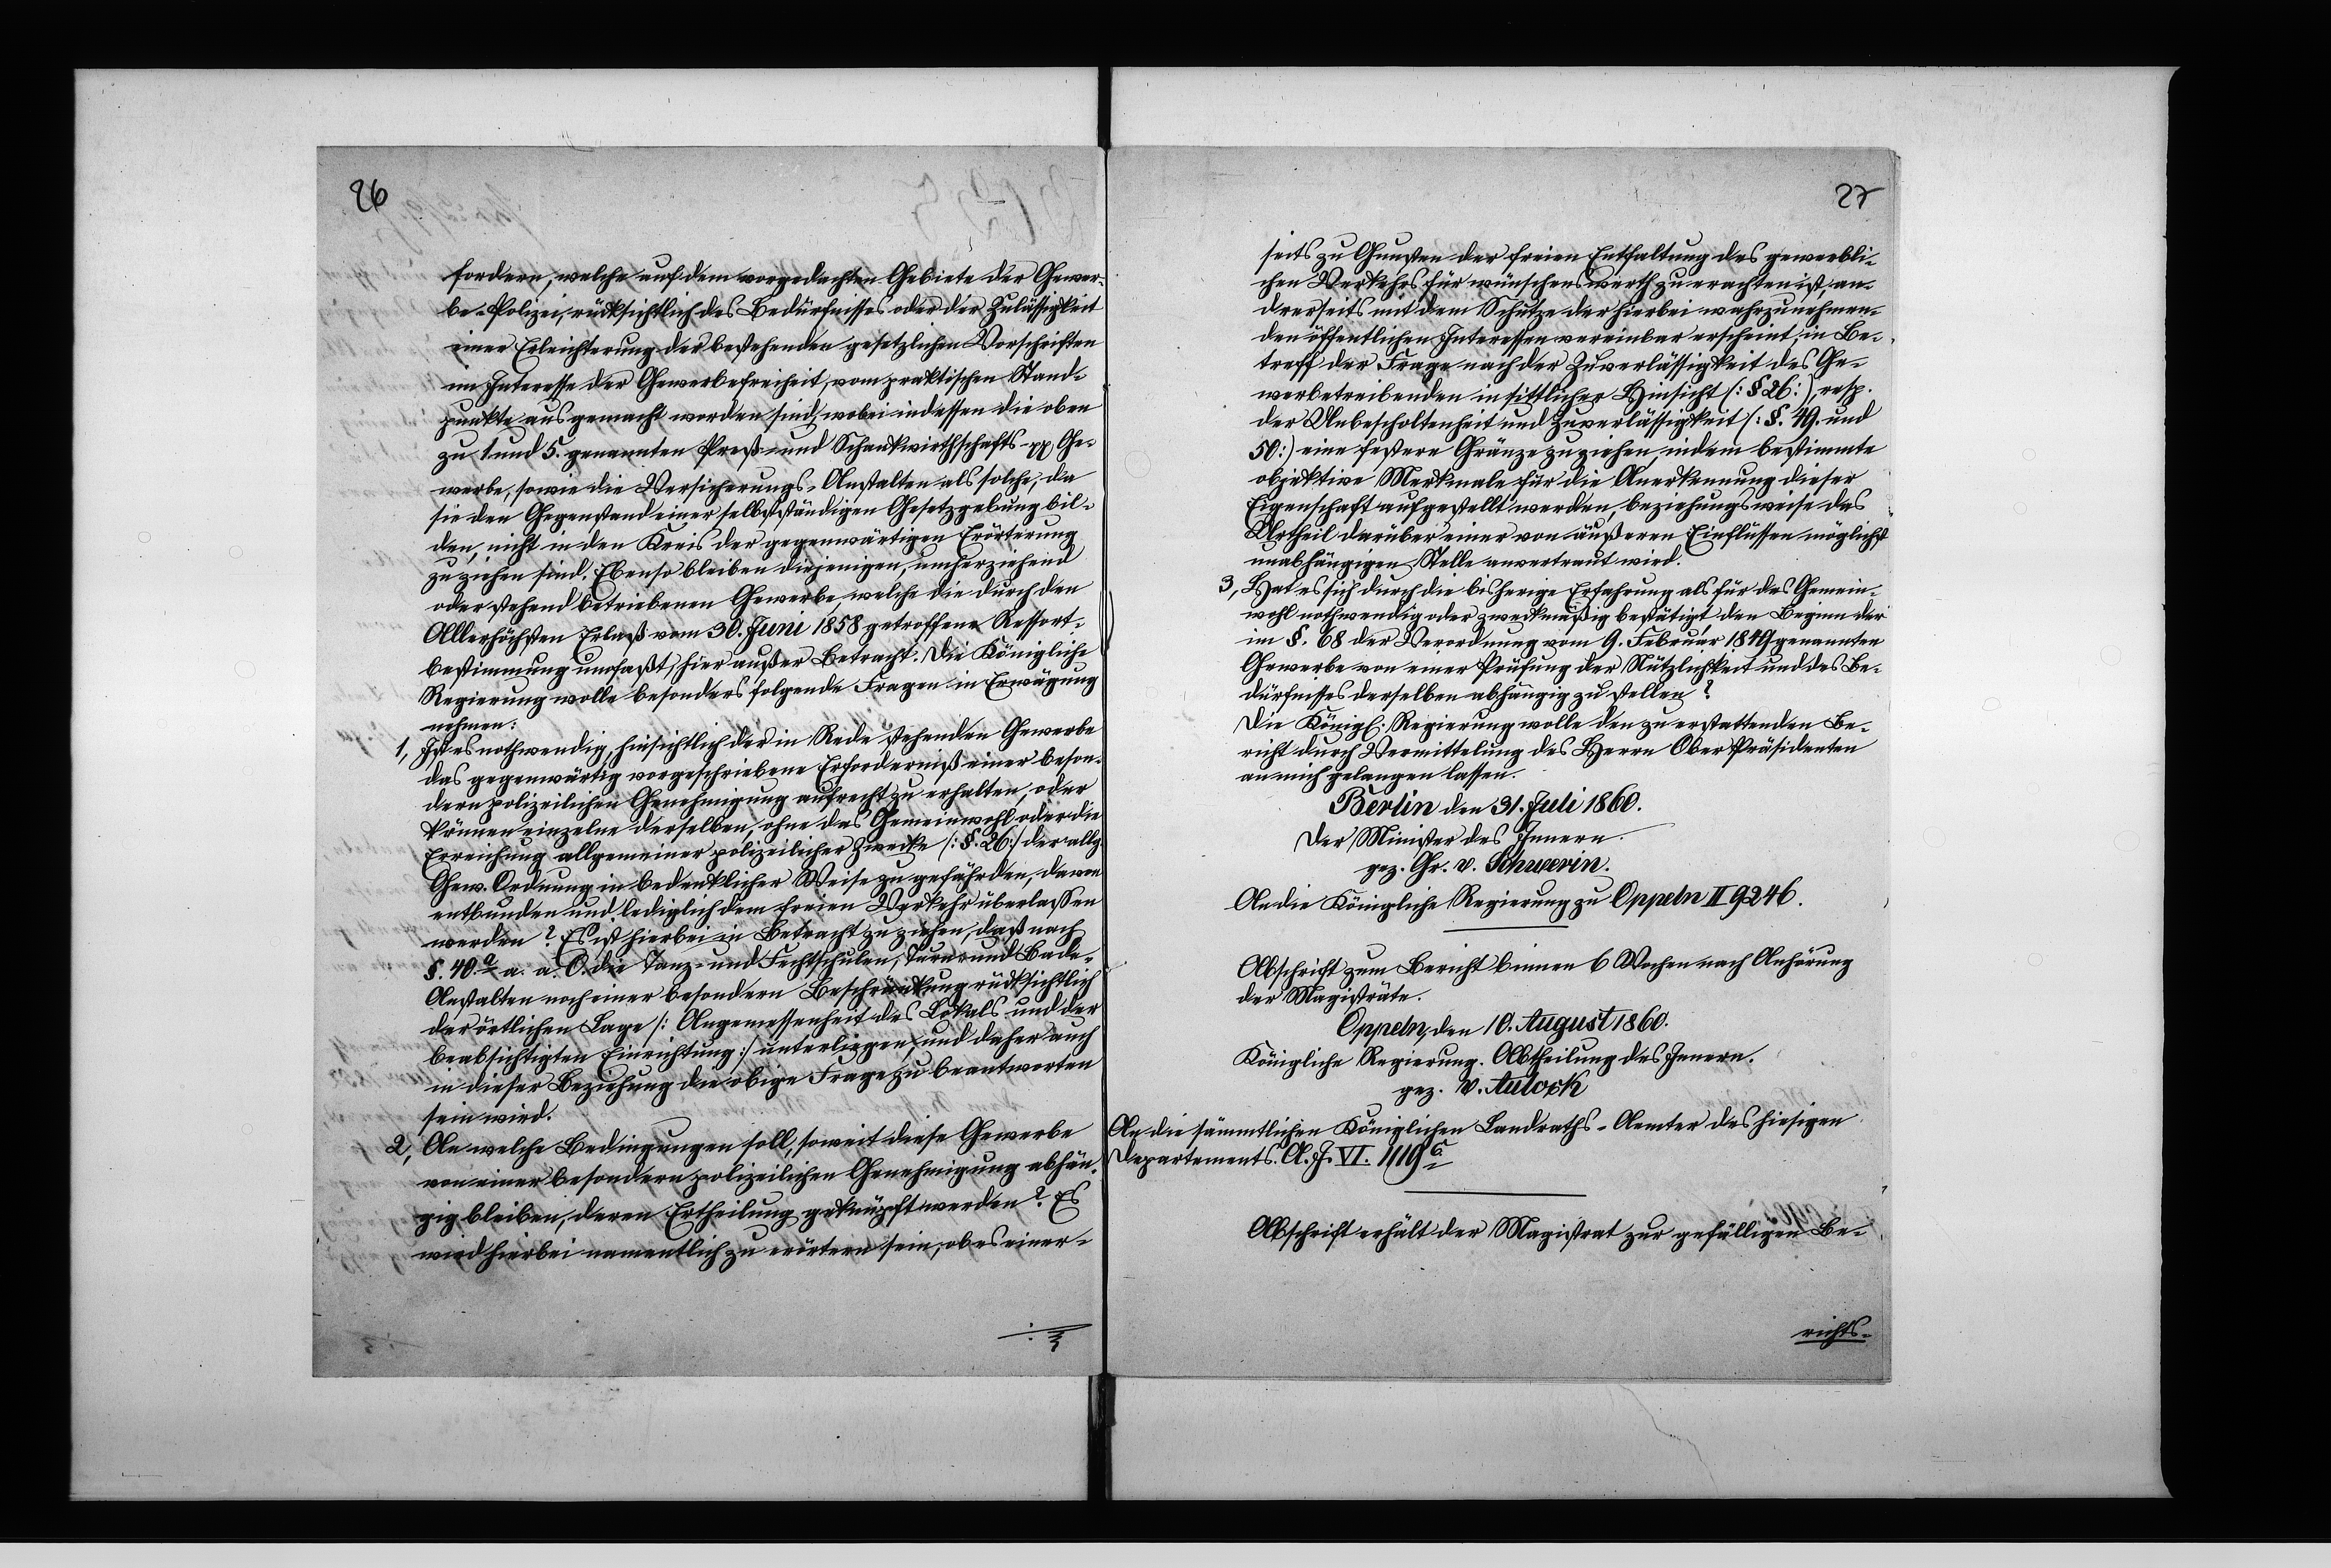 26
fordern, welche auf dem vorgedachten Gebiete der Gewer-
be-Polizei, rücksichtlich des Bedürfnisses oder der Zulässigkeit
einer Erleichterung der bestehenden gesetzlichen Vorschriften
im Interesse der Gewerbefreiheit, vom praktischen Stand-
punkte aus gemacht worden sind, wobei indessen die oben
zu 1 und 5. genannten Preß- und Schankwirthschafts- pp Ge-
werbe, sowie die Versicherungs-Anstalten als solche, da
sie den Gegenstand einer selbstständigen Gesetzgebung bil-
den, nicht in den Kreis der gegenwärtigen Erörterung
zu ziehen sind. Ebenso bleiben diejenigen, umherziehend
oder stehend betriebenen Gewerbe, welche die durch den
Allerhöchsten Erlaß vom 30. Juni 1858 getroffene Ressort-
bestimmung umfaßt, hier außer Betracht. Die Königliche
Regierung wolle besonders folgende Fragen in Erwägung
nehmen:
1, Ist es nothwendig, hinsichtlich der in Rede stehenden Gewerbe
das gegenwärtig vorgeschriebene Erforderniß einer beson-
dern polizeilichen Genehmigung aufrecht zu erhalten, oder
können einzelne derselben, ohne das Gemeinwohl oder die
Erreichung allgemeiner polizeilicher Zwecke /: §. 26 :/ der allg.
Gew. Ordnung in bedenklicher Weise zu gefährden, davon
entbunden und lediglich dem freien Verkehr überlassen
werden? Es ist hierbei in Betracht zu ziehen, daß nach
§. 40.a a. a. O. die Tanz- und Fechtschulen, Turn- und Bade-
Anstalten noch einer besondern Beschränkung rücksichtlich
der örtlichen Lage /: Angemessenheit des Lokals und der
beabsichtigten Einrichtung :/ unterliegen, und daher auch
in dieser Beziehung die obige Frage zu beantworten
sein wird.
2, An welche Bedingungen soll, soweit diese Gewerbe
von einer besondern polizeilichen Genehmigung abhän-
gig bleiben, deren Ertheilung geknüpft werden? Es
wird hierbei namentlich zu erörtern sein, ob es einer-
27
seits zu Gunsten der freien Entfaltung des gewerbli-
chen Verkehrs für wünschenswerth zu erachten ist, an-
drerseits mit dem Schutze der hierbei wahrzunehmen-
den öffentlichen Interessen vereinbar erscheint, in Be-
treff der Frage nach der Zuverlässigkeit des Ge-
werbetreibenden in sittlicher Hinsicht (: § 26 :), resp.
der Unbescholtenheit und Zuverlässigkeit (: §. 49. und
50 :) eine festere Gränze zu ziehen, indem bestimmte
objektive Merkmale für die Anerkennung dieser
Eigenschaft aufgestellt werden, beziehungsweise das
Urtheil darüber einer von äußeren Einflüssen möglichst
unabhängigen Stelle anvertraut wird.
3, Hat es sich durch die bisherige Erfahrung als für das Gemein-
wohl nothwendig oder zweckmäßig bestätigt, den Beginn der
im §. 68 der Verordnung vom 9. Februar 1849 genannten
Gewerbe von einer Prüfung der Nützlichkeit und des Be-
dürfnisses derselben abhängig zu stellen?
Die Königl. Regierung wolle den zu erstattenden Be-
richt durch Vermittelung des Herrn Ober Präsidenten
an mich gelangen lassen.
Berlin den 31. Juli 1860.
Der Minister des Innern.
gez. Gr. v. Schwerin.
An die Königliche Regierung zu Oppeln II 9246.
Abschrift zum Bericht binnen 6 Wochen nach Anhörung
der Magisträte.
Oppeln, den 10. August 1860.
Königliche Regierung. Abtheilung des Innern.
gez. v. Aulock
An die sämmtlichen Königlichen Landraths-Aemter des hiesigen
Departements. A. J. VI. 1119
Abschrift erhält der Magistrat zur gefälligen Be-
richts-